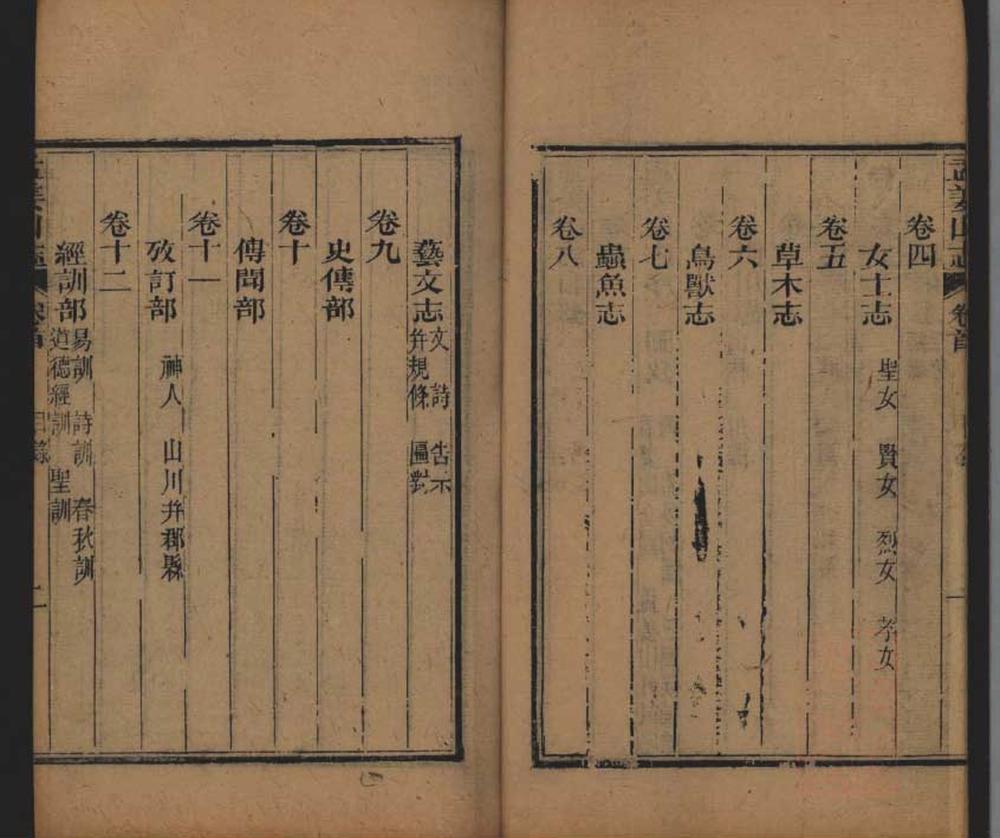 孟姜山志 卷首
卷四
女士志 聖女 賢女 烈女 孝女
卷五
草木志
卷六
鳥獸志
卷七
蟲魚志
卷八
藝文志 文 詩 告示
并規條 匾對
卷九
史傳部
卷十
傳聞部
卷十一
攷訂部 神人 山川并郡縣
卷十二
經訓部 易訓 詩訓 春秋訓
道德經訓 聖訓
孟姜山志 卷首 目錄 二